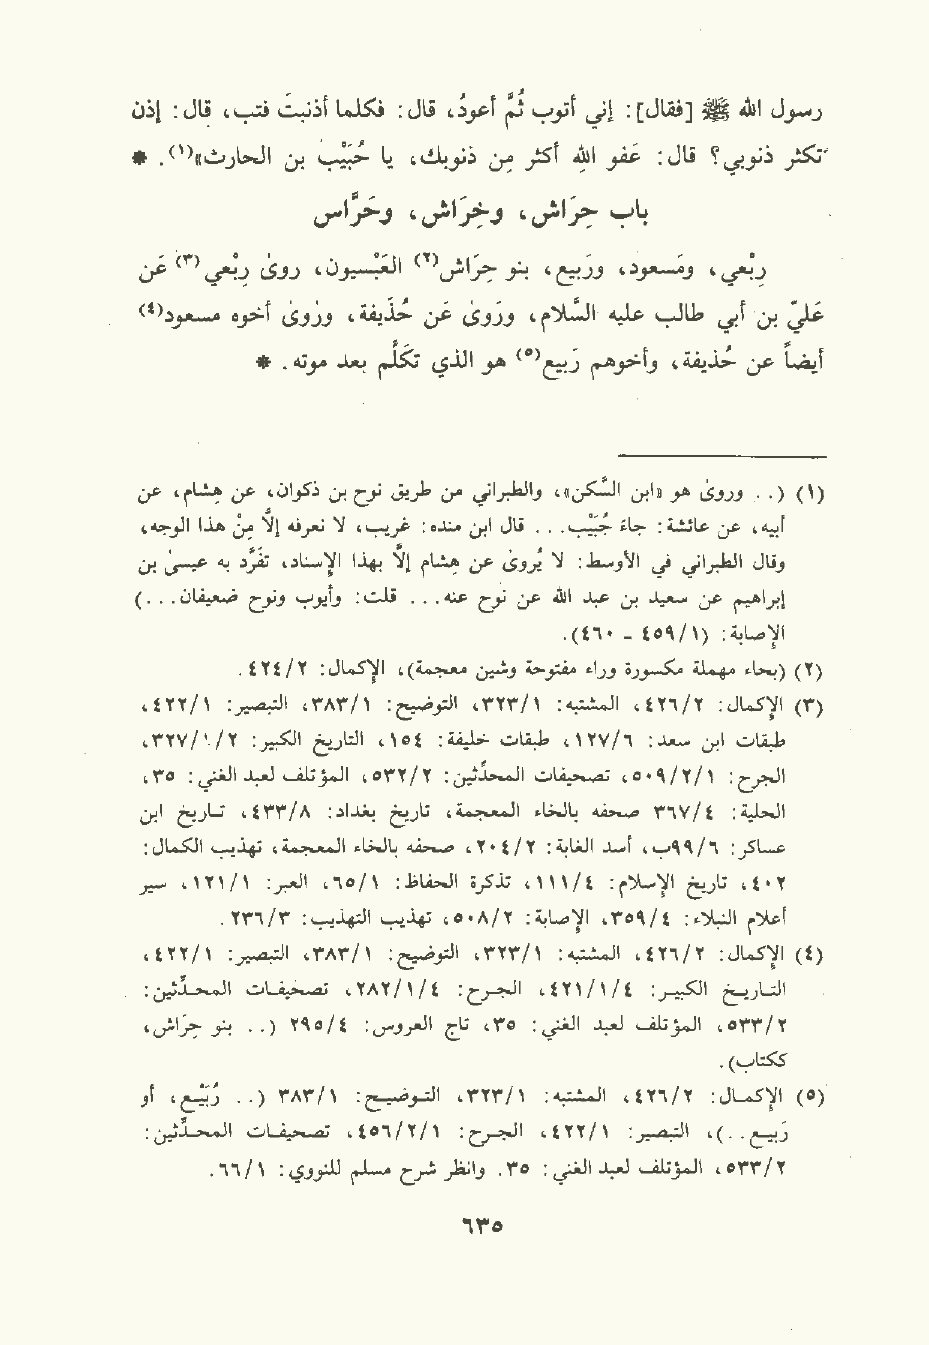 رسول الله ﷺ [فقال]: إني أتوب ثُمَّ أعودُ، قال: فكلما أذنبتَ فتب، قال: إذن
تكثر ذنوبي؟ قال: عَفو اللهِ أكثر مِن ذنوبك، يا حُبَيْبَ بن الحارث»(١). *
باب حِرَاش، وخِرَاش، وحَرَّاس
رِبْعي، ومَسعود، ورَبيع، بنو حِرَاش(٢) العَبْسيون، وروىٰ رِبْعي(٣) عَن
عَليّ بن أبي طالب عليه السَّلام، ورَوىٰ عَن حُذَيفة، ورَوىٰ أخوه مسعود(٤)
أيضاً عن حُذيفة، وأخوهم رَبيع(٥) هو الذي تَكلَّم بعد موته. *
(١) (.. وروىٰ هو «ابن السَّكن»، والطبراني من طريق نوح بن ذكوان، عن هِشام، عن
أبيه، عن عائشة: جاء جُبَيْب... قال ابن منده: غريب، لا نعرفه إلَّا مِنْ هذا الوجه،
وقال الطبراني في الأوسط: لا يُروىٰ عن هشام إلَّا بهذا الإسناد، تفَّرد به عيسىٰ بن
إبراهيم عن سعيد بن عبد الله عن نوح عنه... قلت: وأيوب ونوح ضعيفان...)
الإصابة: (١/٤٥٩ - ٤٦٠).
(٢) (بحاء مهملة مكسورة وراء مفتوحة وشين معجمة)، الإكمال: ٢/٤٢٤.
(٣) الإكمال: ٢/٤٢٦، المشتبه: ١/٣٢٣، التوضيح: ١/٣٨٣، التبصير: ١/٤٢٢،
طبقات ابن سعد: ٦/١٢٧، طبقات خليفة: ١٥٤، التاريخ الكبير: ٢/١/٣٢٧،
الجرح: ١/٢/٥٠٩، تصحيفات المحدِّثين: ٢/٥٣٢، المؤتلف لعبد الغني: ٣٥،
الحلية: ٤/٣٦٧ صحفه بالخاء المعجمة، تاريخ بغداد: ٨/٤٣٣، تاريخ ابن
عساكر: ٦/٩٩ب، أسد الغابة: ٢/٢٠٤، صحفه بالخاء المعجمة، تهذيب الكمال:
٤٠٢، تاريخ الإسلام: ٤/١١١، تذكرة الحفاظ: ١/٦٥، العبر: ١/١٢١، سير
أعلام النبلاء: ٤/٣٥٩، الإصابة: ٢/٥٠٨، تهذيب التهذيب: ٣/٢٣٦.
(٤) الإكمال: ٢/٤٢٦، المشتبه: ١/٣٢٣، التوضيح: ١/٣٨٣، التبصير: ١/٤٢٢،
التاريخ الكبير: ٤/١/٤٢١، الجرح: ٤/١/٢٨٢، تصحيفات المحدِّثين:
٢/٥٣٣، المؤتلف لعبد الغني: ٣٥، تاج العروس: ٤/٢٩٥ (.. بنو حِرَاش،
ككتاب).
(٥) الإكمال: ٢/٤٢٦، المشتبه: ١/٣٢٣، التوضيح: ١/٣٨٣ (.. رُبَيْع، أو
رَبيع..)، التبصير: ١/٤٢٢، الجرح: ١/٢/٤٥٦، تصحيفات المحدِّثين:
٢/٥٣٣، المؤتلف لعبد الغني: ٣٥. وانظر شرح مسلم للنووي: ١/٦٦.
٦٣٥